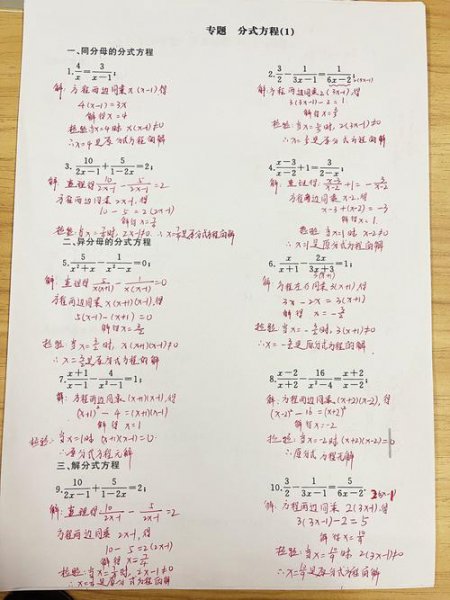 专题 分式方程(1)
一、同分母的分式方程
1. 4/x = 3/(x-1);
解:方程两边同乘x(x-1)得
4(x-1)=3x
解得x=4
检验:当x=4时 x(x-1)≠0
∴x=4是原分式方程的解
2. 3/2 - 1/(3x-1) = 1/(6x-2);
解:方程两边同乘2(3x-1),得
3(3x-1)-2=1
解得x=
检验:当x= 时, 2(3x-1)≠0
∴x= 是原分式方程的解
3. 10/(2x-1) + 5/(1-2x) = 2;
解:整理得 10/(2x-1) - 5/(2x-1) = 2
方程两边同乘2x-1,得
10-5=2(2x-1)
解得x=7/4
检验:当x=7/4时, 2x-1≠0. ∴x=7/4是原分式方程的解
4. (x-3)/(x-2) + 1 = 3/(2-x)
解:整理得: (x-3)/(x-2) + 1 = -3/(x-2)
方程两边同乘x-2,得
x-3+(x-2)=-3
解得x=1
检验:当x=1时 x-2≠0
∴x=1是原分式方程的解
二、异分母的分式方程
5. 5/(x²+x) - 1/(x²-x) = 0;
解:整理得 5/x(x+1) - 1/x(x-1) = 0
方程两边同乘x(x+1)(x-1),得
5(x-1)-(x+1)=0
解得x=3/2
检验:当x=3/2时, x(x+1)(x-1)≠0
∴x=3/2是原分式方程的解
6. x/(x+1) - 2x/(3x+3) = 1;
3(x+1)
解:方程左右同乘3(x+1),得
3x-2x=3(x+1)
解得x=-3/2
检验:当x=-3/2时, 3(x+1)≠0
∴x=-3/2是原分式方程的解
7. (x+1)/(x-1) - 4/(x²-1) = 1;
解:方程两边同乘(x+1)(x-1),得
(x+1)²-4=(x+1)(x-1)
解得x=1
检验:当x=1时 (x+1)(x-1)=0
∴原分式方程无解
8. (x-2)/(x+2) - 16/(x²-4) = (x+2)/(x-2);
解:方程两边同乘(x+2)(x-2),得
(x-2)²-16=(x+2)²
解得x=-2
检验:当x=-2时(x+2)(x-2)=0
∴原分式方程无解
三、解分式方程
9. 10/(2x-1) + 5/(1-2x) = 2;
解:整理得 10/(2x-1) - 5/(2x-1) = 2
方程两边同乘2x-1,得
10-5=2(2x-1)
解得x=7/4
检验:当x=7/4时, 2x-1≠0
∴x=7/4是原分式方程的解
10. 3/2 - 1/(3x-1) = 5/(6x-2).
解:方程两边同乘2(3x-1),得
3(3x-1)-2=5
解得x=10/9
检验:当x=10/9时, 2(3x-1)≠0
∴x=10/9是原分式方程的解